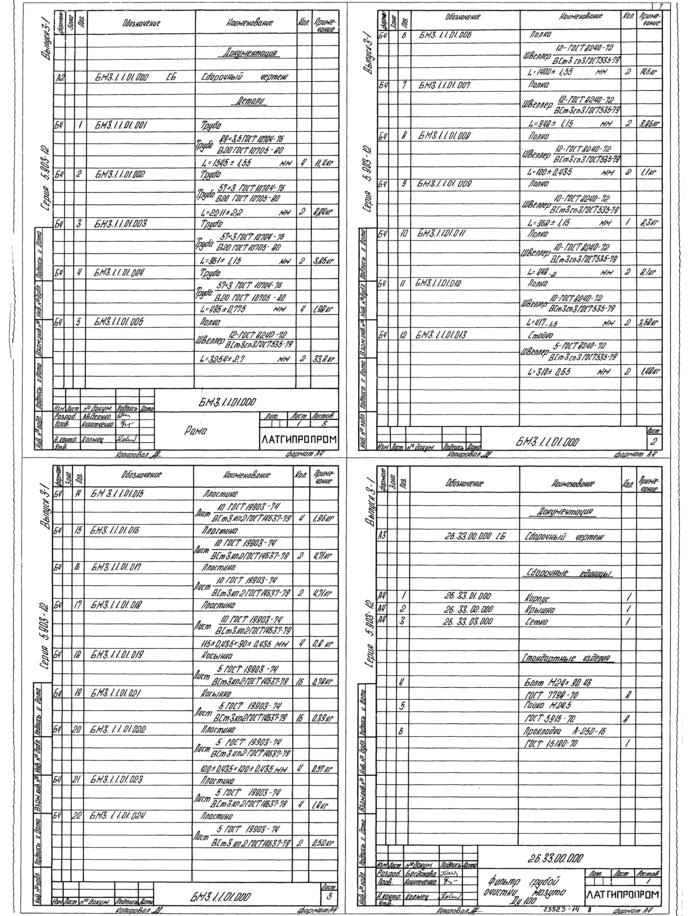 Выпуск 3-1
Серия 5.903-12
Формат Зона Поз. Обозначение Наименование Кол. Примечание
Документация
А2 БМЗ.1.1.01.000 СБ Сборочный чертеж
Детали
БЧ 1 БМЗ.1.1.01.001 Труба
Труба 89×3,5 ГОСТ 10704-76
В20 ГОСТ 10705-80
L=1545±1,55 мм 4 11,4кг
БЧ 2 БМЗ.1.1.01.002 Труба
Труба 57×3 ГОСТ 10704-76
В20 ГОСТ 10705-80
L=2211±2,2 мм 2
БЧ 3 БМЗ.1.1.01.003 Труба
57×3 ГОСТ 10704-76
Труба В20 ГОСТ 10705-80
L=961±1,15 мм 2 3,85кг
БЧ 4 БМЗ.1.1.01.004 Труба
Труба 57×3 ГОСТ 10704-76
В20 ГОСТ 10705-80
L=495±0,775 мм 4 1,98кг
БЧ 5 БМЗ.1.1.01.005 Полка
Швеллер 12-ГОСТ 8240-72
ВСт3сп3 ГОСТ 535-79
L=3254±2,7 мм 2
БМЗ.1.1.01.000
Изм Лист № докум. Подпись Дата
Разраб. Авдеенко
Пров. Никитенко
Н.контр. Колмец
Утв.
Рама
Лит. Лист Листов
1 3
ЛАТГИПРОПРОМ
Копировал формат А4
Выпуск 3-1
Серия 5.903-12
Формат Зона Поз. Обозначение Наименование Кол. Примечание
БЧ 6 БМЗ.1.1.01.006 Полка
Швеллер 12-ГОСТ 8240-72
ВСт3сп3 ГОСТ 535-79
L=1400±1,55 мм 2 14,6кг
БЧ 7 БМЗ.1.1.01.007 Полка
Швеллер 12-ГОСТ 8240-72
ВСт3сп3 ГОСТ 535-79
L=948±1,15 мм 2
БЧ 8 БМЗ.1.1.01.008 Полка
Швеллер 12-ГОСТ 8240-72
ВСт3сп3 ГОСТ 535-79
L=100±0,435 мм 2 1,1кг
БЧ 9 БМЗ.1.1.01.009 Полка
Швеллер 10-ГОСТ 8240-72
ВСт3сп3 ГОСТ 535-79
L=968±1,15 мм 1 8,3кг
БЧ 10 БМЗ.1.1.01.011 Полка
Швеллер 10-ГОСТ 8240-72
ВСт3сп3 ГОСТ 535-79
L=948 мм 2 8,1кг
БЧ 11 БМЗ.1.1.01.012 Полка
Швеллер 10-ГОСТ 8240-72
ВСт3сп3 ГОСТ 535-79
L=417 мм 2 3,58кг
БЧ 12 БМЗ.1.1.01.013 Стойка
Швеллер 5-ГОСТ 8240-72
ВСт3сп3 ГОСТ 535-79
L=310±0,65 мм 2 1,48кг
Изм Лист № докум. Подпись Дата
БМЗ.1.1.01.000
Лист 2
Копировал формат А4
Выпуск 3-1
Серия 5.903-12
Формат Зона Поз. Обозначение Наименование Кол. Примечание
БЧ 14 БМЗ.1.1.01.015 Пластина
Лист 10 ГОСТ 19903-74
ВСт3кп2 ГОСТ 14637-79 4 1,96кг
БЧ 15 БМЗ.1.1.01.016 Пластина
Лист 10 ГОСТ 19903-74
ВСт3кп2 ГОСТ 14637-79 2 4,71кг
БЧ 16 БМЗ.1.1.01.017 Пластина
Лист 10 ГОСТ 19903-74
ВСт3кп2 ГОСТ 14637-79 2 4,71кг
БЧ 17 БМЗ.1.1.01.018 Пластина
Лист 10 ГОСТ 19903-74
ВСт3кп2 ГОСТ 14637-79
115±0,435×90±0,435 мм 4 0,8 кг
БЧ 18 БМЗ.1.1.01.019 Косынка
Лист 5 ГОСТ 19903-74
ВСт3кп2 ГОСТ 14637-79 16 0,78кг
БЧ 19 БМЗ.1.1.01.021 Косынка
Лист 5 ГОСТ 19903-74
ВСт3кп2 ГОСТ 14637-79 16 0,39кг
БЧ 20 БМЗ.1.1.01.022 Пластина
Лист 5 ГОСТ 19903-74
ВСт3кп2 ГОСТ 14637-79
120±0,435×120±0,435 мм 4 0,57кг
БЧ 21 БМЗ.1.1.01.023 Пластина
Лист 5 ГОСТ 19903-74
ВСт3кп2 ГОСТ 14637-79 4
БЧ 22 БМЗ.1.1.01.024 Пластина
Лист 5 ГОСТ 19903-74
ВСт3кп2 ГОСТ 14637-79 2 0,52кг
Изм Лист № докум. Подпись Дата
БМЗ.1.1.01.000
Лист 3
Копировал формат А4
Выпуск 3-1
Серия 5.903-12
Формат Зона Поз. Обозначение Наименование Кол. Примечание
Документация
А3 26.33.00.000 СБ Сборочный чертеж
Сборочные единицы
А4 1 26.33.01.000 Корпус 1
А4 2 26.33.02.000 Крышка 1
А4 3 26.33.03.000 Сетка 1
Стандартные изделия
4 Болт М24×90.46
ГОСТ 7798-70 8
5 Гайка М24.5
ГОСТ 5915-70 8
6 Прокладка А-250-16
ГОСТ 15180-70 1
26.33.00.000
Изм Лист № докум. Подпись Дата
Разраб. Богданова
Пров. Никитенко
Н.контр. Колмец
Утв.
Фильтр грубой
очистки мазута
Ду 100
Лит. Лист Листов
1
ЛАТГИПРОПРОМ
Копировал 23523-14 8 формат А4